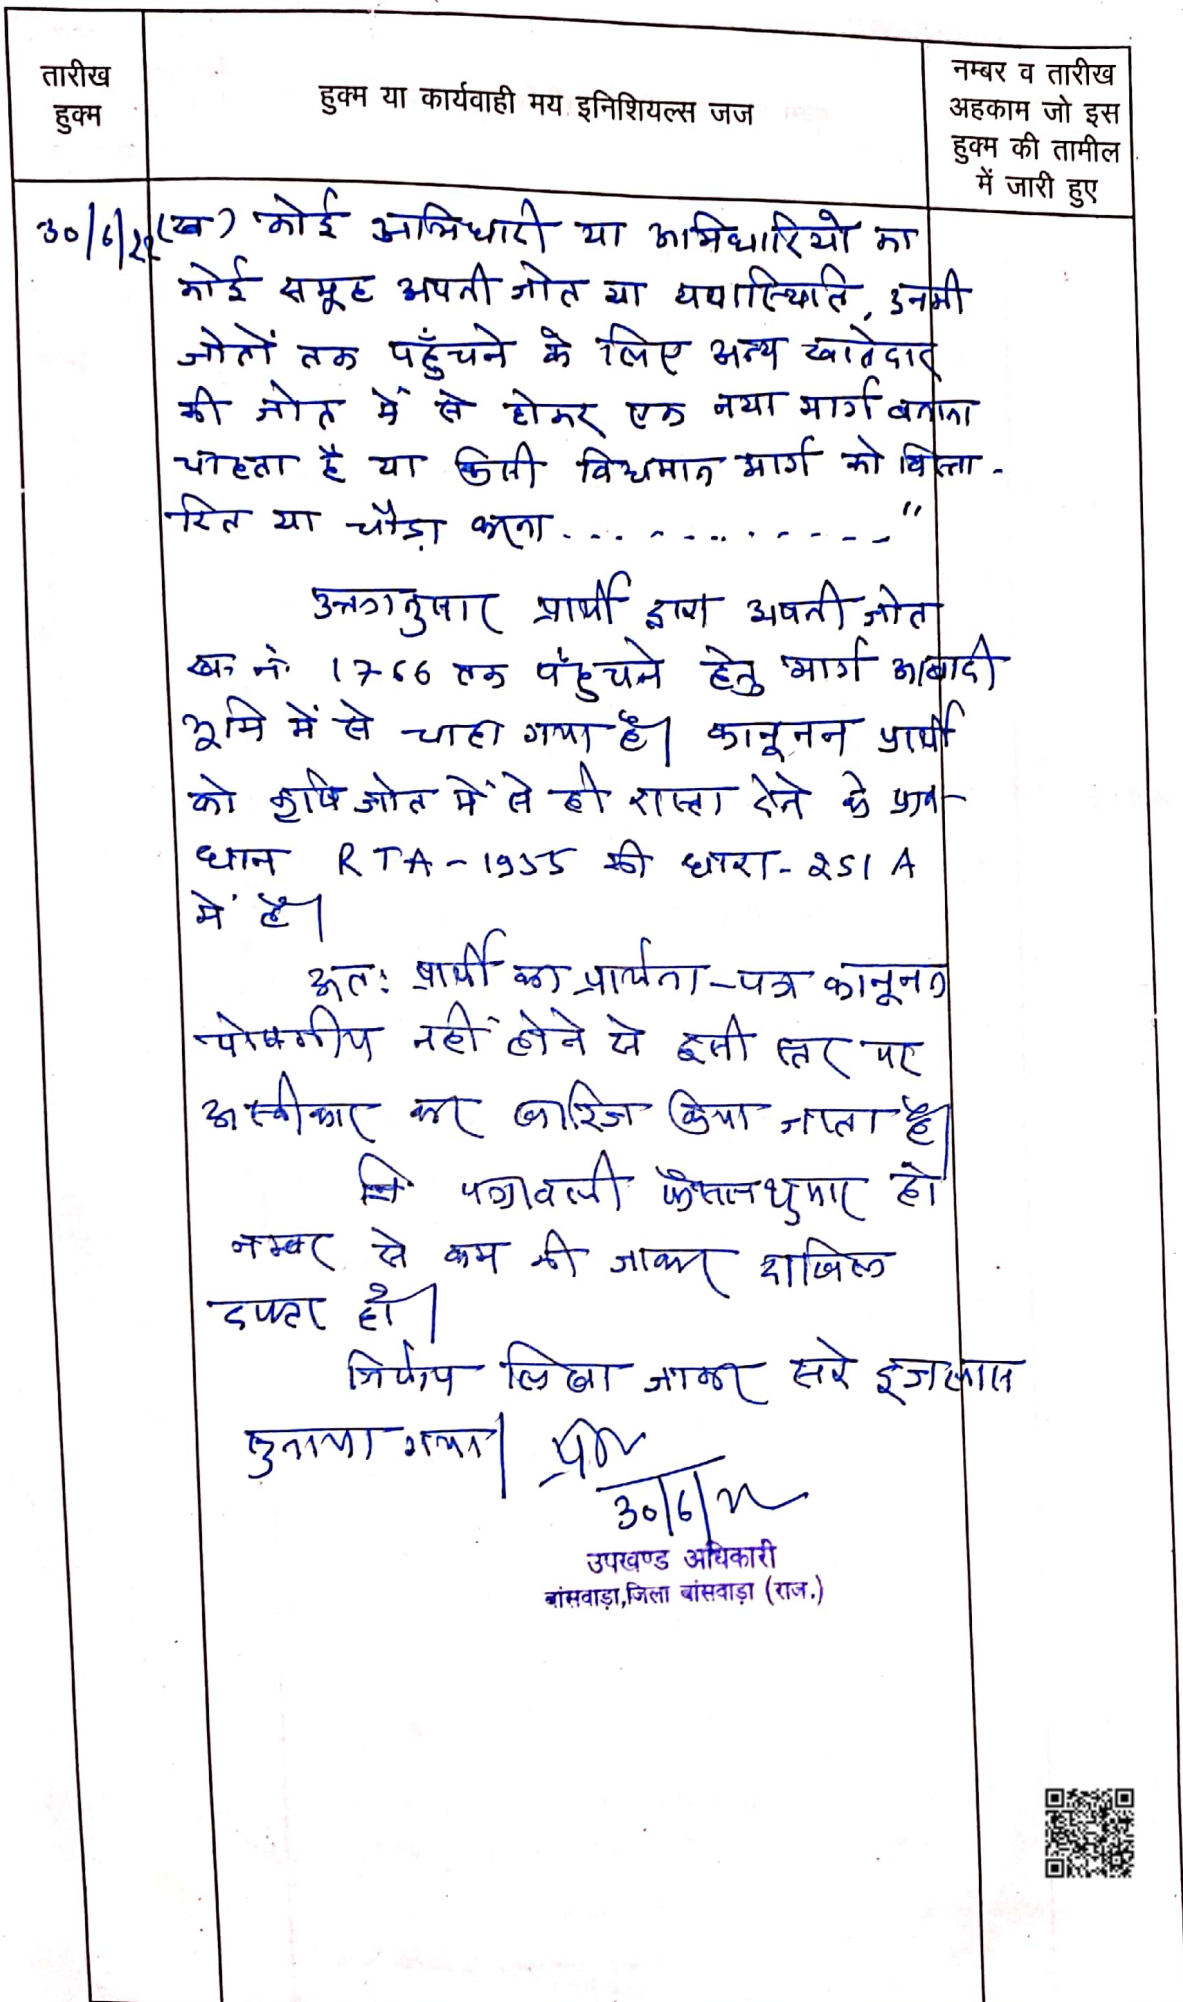 तारीख
हुक्म
हुक्म या कार्यवाही मय इनिशियल्स जज
नम्बर व तारीख
अहकाम जो इस
हुक्म की तामील
में जारी हुए
30/6/22 (ख) कोई अभिधारी या अभिधारियों का
कोई समूह अपनी जोत या यथास्थिति, उनकी
जोतों तक पहुँचने के लिए अन्य खातेदार
की जोत में से होकर एक नया मार्ग बनाना
चाहता है या किसी विद्यमान मार्ग को विस्ता-
रित या चौड़ा करना ............."
उक्तानुसार प्रार्थी द्वारा अपनी जोत
ख. नं. 1766 तक पंहुचने हेतु मार्ग आबादी
भूमि में से चाहा गया है। कानूनन प्रार्थी
को कृषि जोत में से ही रास्ता देने के प्राव-
धान RTA-1955 की धारा-251A
में है।
अतः प्रार्थी का प्रार्थना-पत्र कानूनन
पोषणीय नहीं होने से इसी स्तर पर
अस्वीकार कर खारिज किया जाता है।
पत्रावली फैसलशुमार हो
नम्बर से कम की जाकर दाखिल
दफ्तर हो।
निर्णय लिखा जाकर सरे इजलास
सुनाया गया।
30/6/22
उपखण्ड अधिकारी
बांसवाड़ा,जिला बांसवाड़ा (राज.)